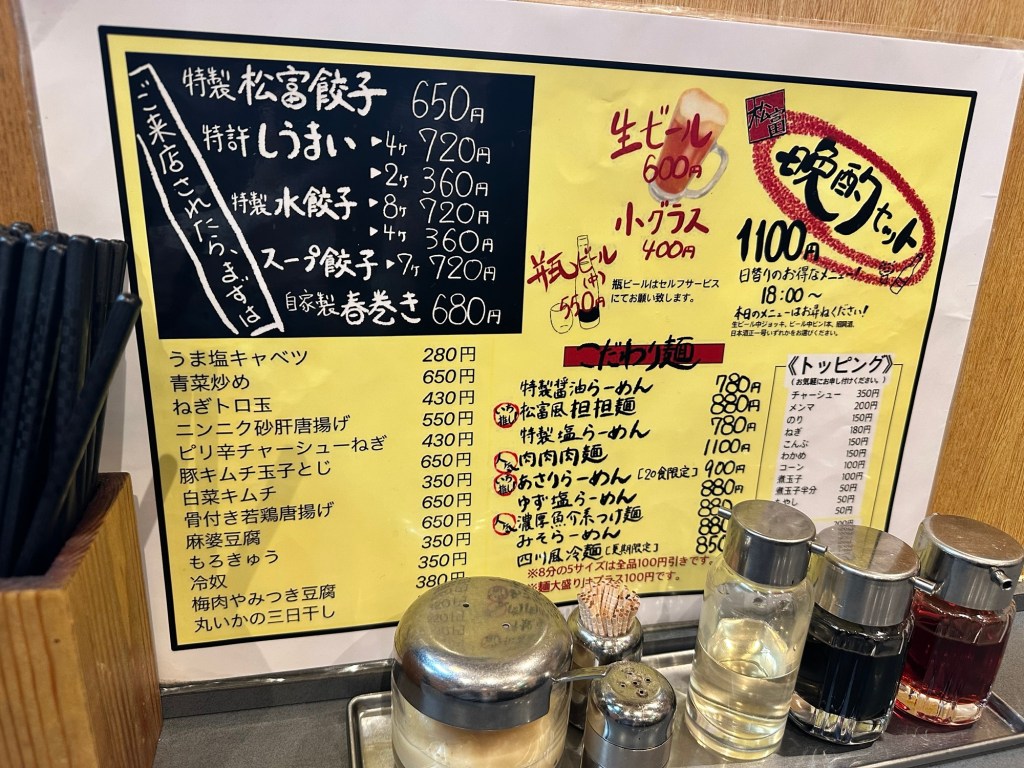 ご来店されたらまずは
特製 松富餃子 650円
特許 しうまい ▶4ヶ 720円
▶2ヶ 360円
特製 水餃子 ▶8ヶ 720円
▶4ヶ 360円
スープ餃子 ▶7ヶ 720円
自家製 春巻き 680円
生ビール
600円
小グラス
400円
瓶ビール(中)
550円
瓶ビールはセルフサービス
にてお願い致します。
松富
晩酌セット
1100円
日替りのお得なメニュー!
18:00〜
本日のメニューはお尋ねください!
生ビール中ジョッキ、ビール中ビン1本、紹興酒、
日本酒正一号いずれかをお選びください。
うま塩キャベツ 280円
青菜炒め 650円
ねぎトロ玉 430円
ニンニク砂肝唐揚げ 550円
ピリ辛チャーシューねぎ 430円
豚キムチ玉子とじ 650円
白菜キムチ 350円
骨付き若鶏唐揚げ 650円
麻婆豆腐 650円
もろきゅう 350円
冷奴 350円
梅肉やみつき豆腐 380円
丸いかの三日干し
こだわり麺
特製醤油らーめん 780円
いち推し 松富風担担麺 880円
特製塩らーめん 780円
人気 肉肉肉麺 1100円
いち推し あさりらーめん [20食限定] 900円
ゆず塩らーめん 880円
人気 濃厚魚介系つけ麺 880
みそらーめん 880
四川風冷麺 [夏期限定] 850
※8分の5サイズは全品100円引きです。
※麺大盛りはプラス100円です。
《トッピング》
(お気軽にお申し付けください。)
チャーシュー 350円
メンマ 200円
のり 150円
ねぎ 180円
こんぶ 150円
わかめ 150円
コーン 100円
煮玉子 100円
煮玉子半分 50円
もやし 50円